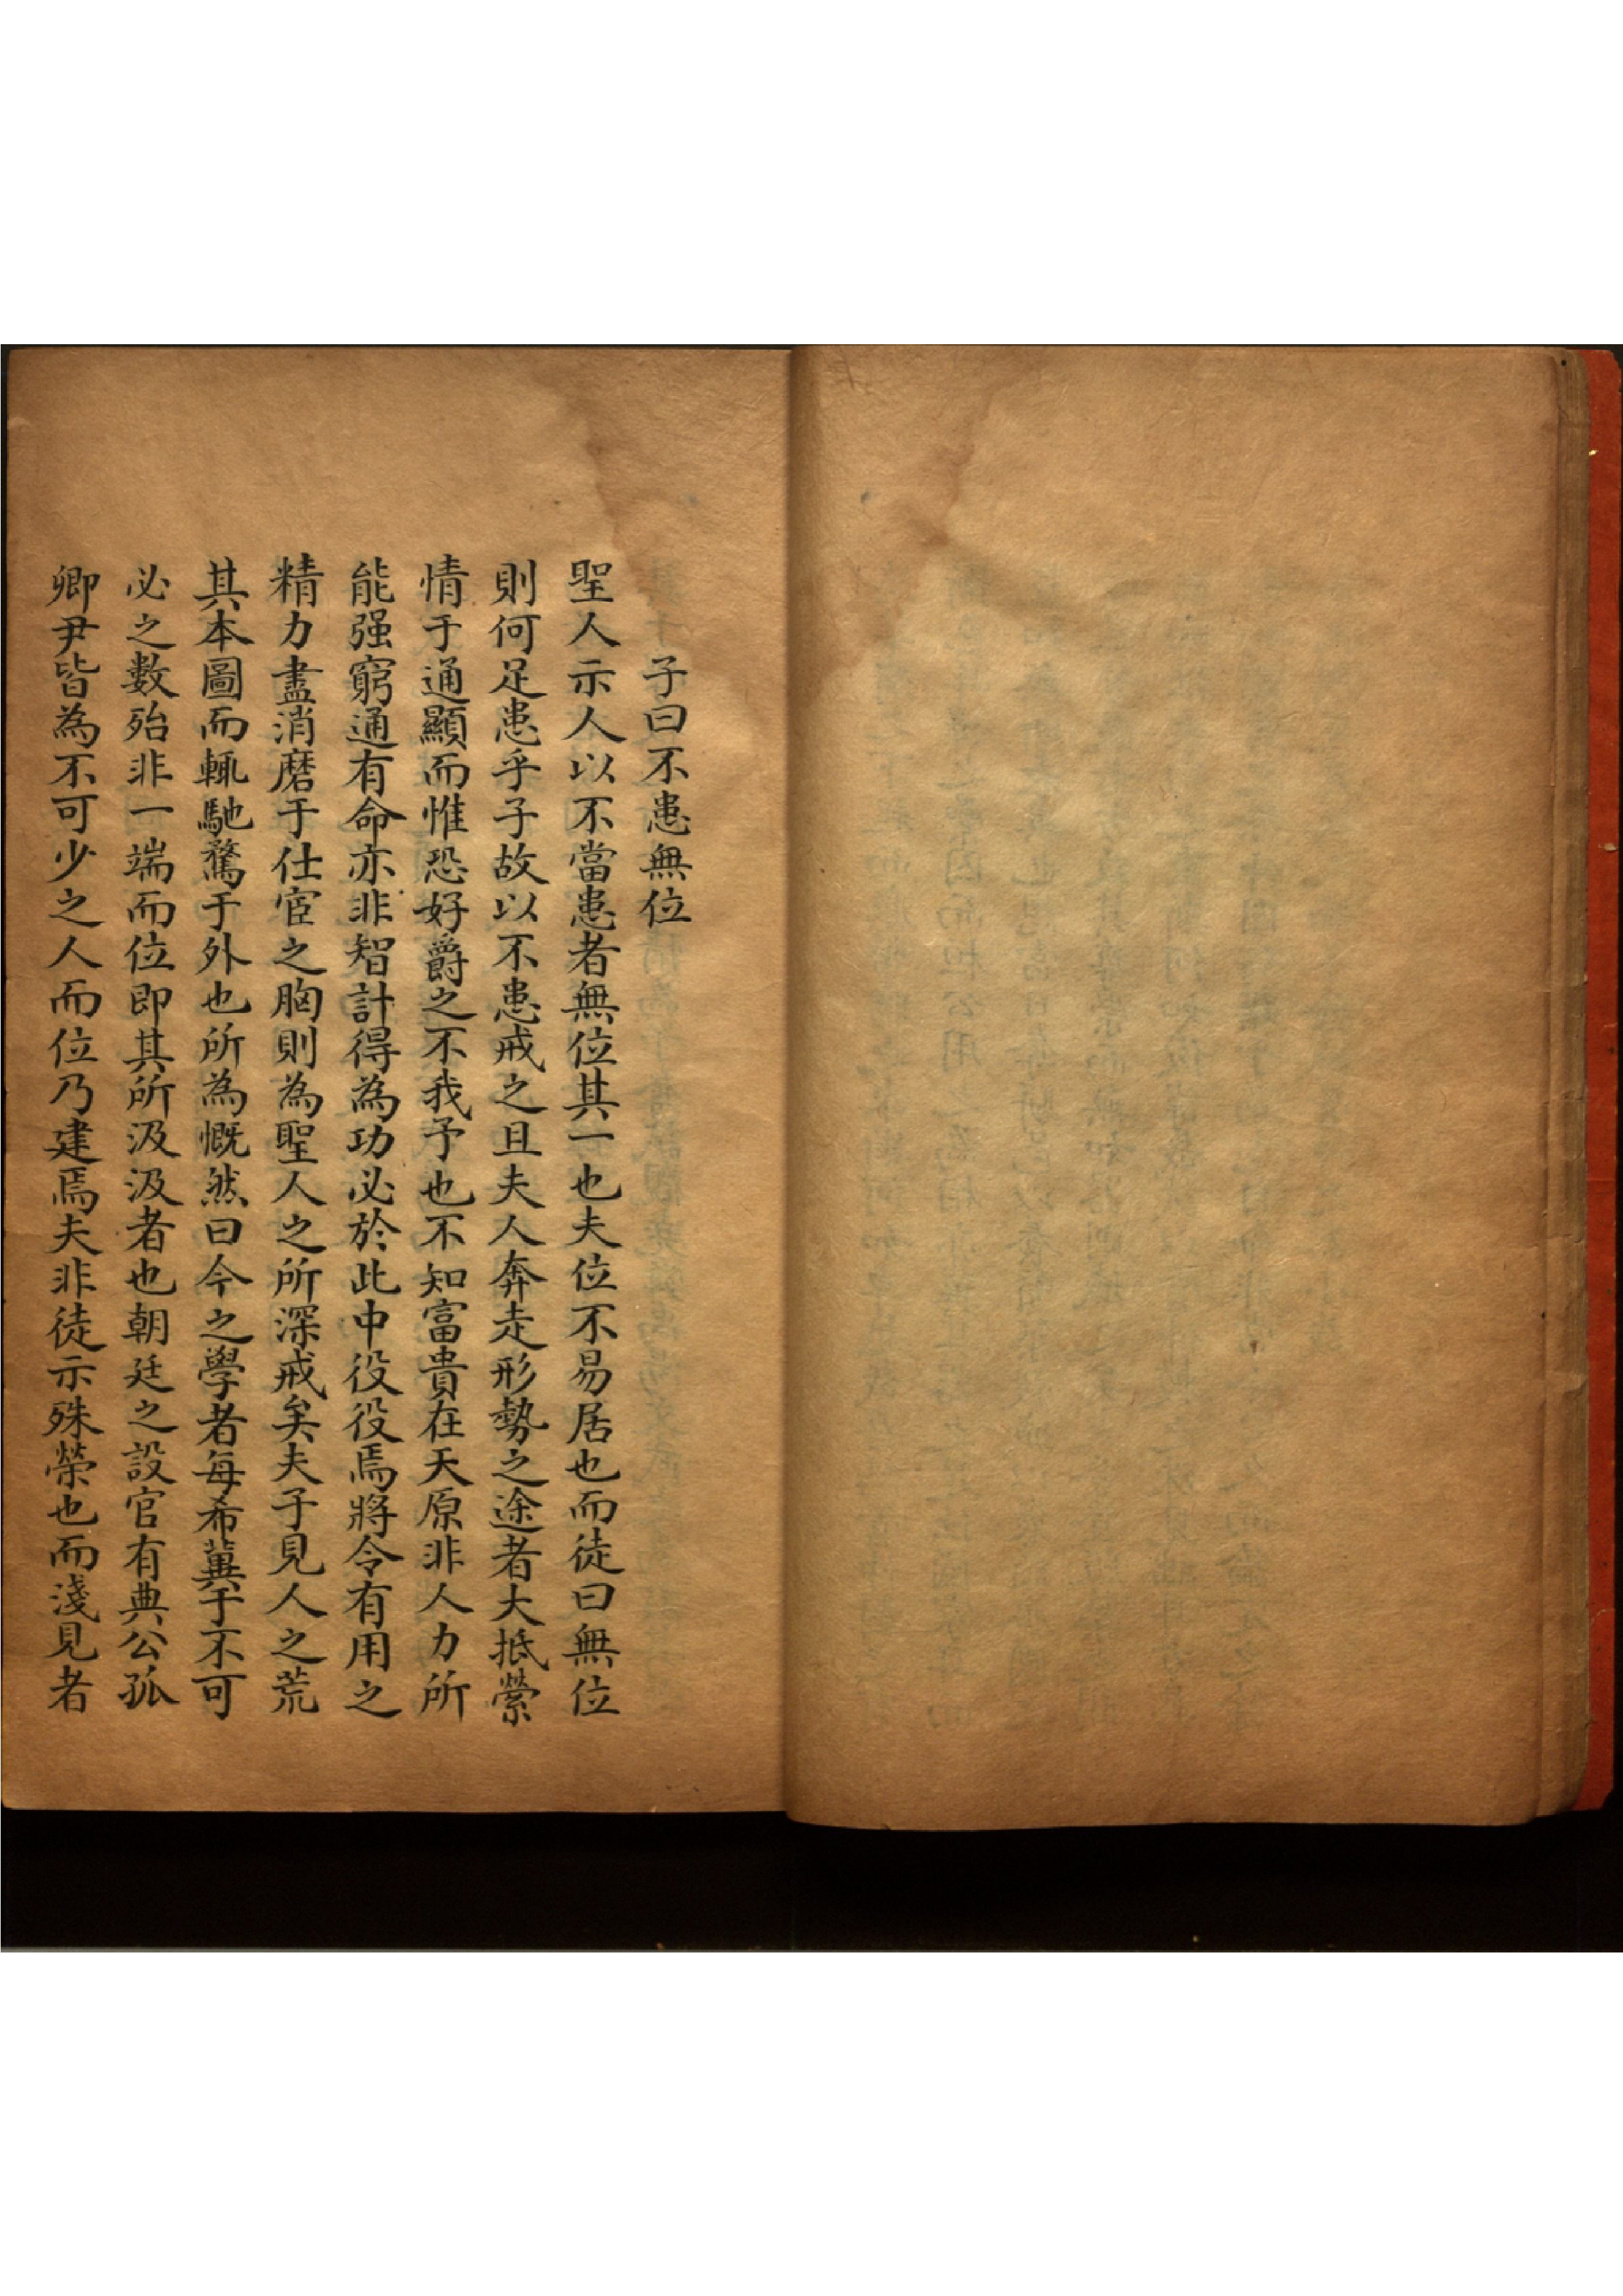 子曰不患無位
聖人示人以不當患者無位其一也夫位不易居也而徒曰無位
則何足患乎子故以不患戒之且夫人奔走形勢之途者大抵縈
情于通顯而惟恐好爵之不我予也不知富貴在天原非人力所
能强窮通有命亦非智計得為功必於此中役役焉將令有用之
精力盡消磨于仕宦之胸則為聖人之所深戒矣夫子見人之荒
其本圖而輒馳騖于外也所為慨然曰今之學者每希冀于不可
必之數殆非一端而位即其所汲汲者也朝廷之設官有典公孤
卿尹皆為不可少之人而位乃建焉夫非徒示殊榮也而淺見者